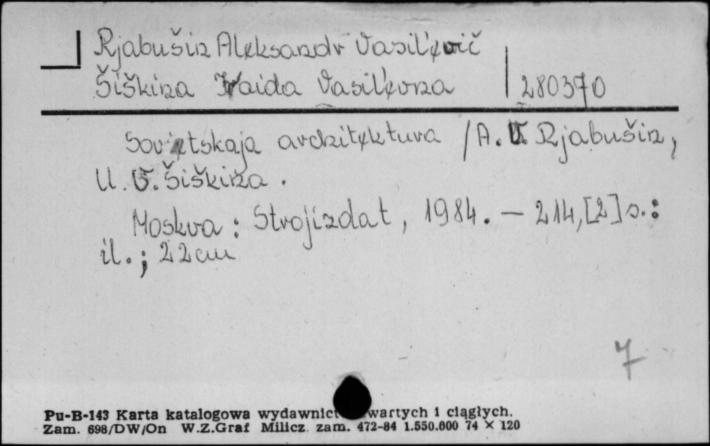 Rjabušin Aleksandr Vasil'evič
Šiškina Iraida Vasil'evna 280370
Sovetskaja architektura / A. V. Rjabušin,
U. V. Šiškina.
Moskva : Strojizdat, 1984. — 214,[2] s. :
il. ; 22cm
7
Pu-B-143 Karta katalogowa wydawnict wartych i ciągłych.
Zam. 698/DW/On W.Z.Graf Milicz zam. 472-84 1.550.000 74 × 120